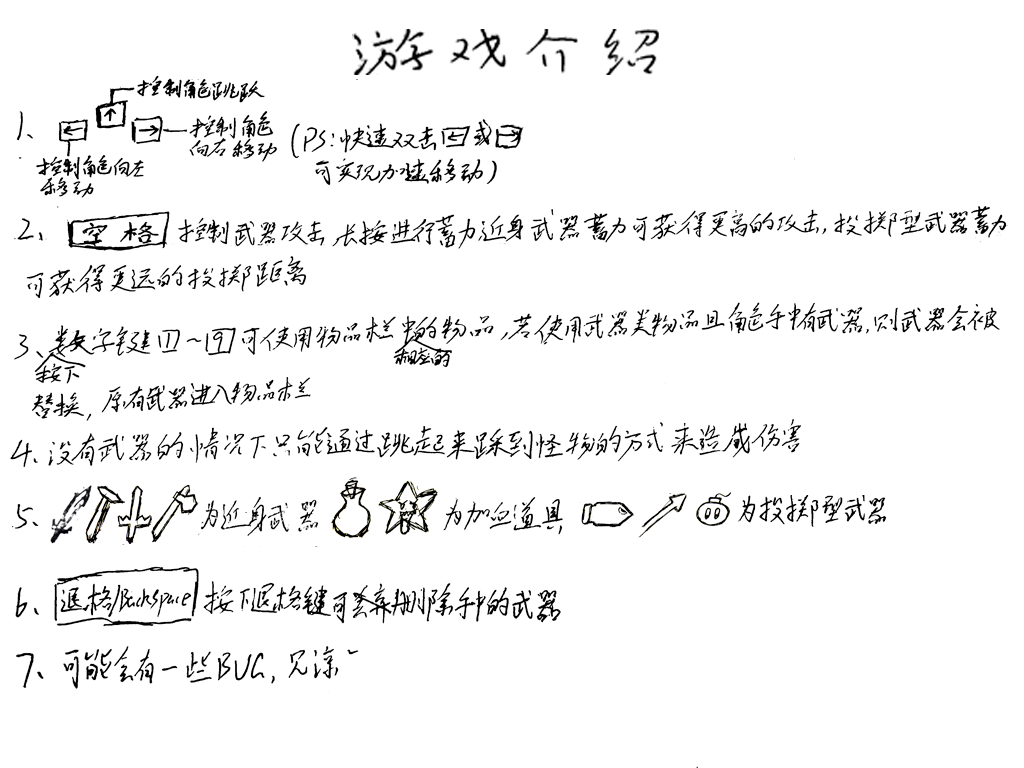 游戏介绍
控制角色跳跃
1、 ← ↑ → 控制角色向右移动 (PS:快速双击←或→
控制角色向左移动
可实现加速移动)
2、空格 控制武器攻击,长按进行蓄力近身武器蓄力可获得更高的攻击,投掷型武器蓄力
可获得更远的投掷距离
3、数字键1~9可使用物品栏中的物品,若使用武器类物品且角色手中有武器,则武器会被
按下 相应的
替换,原有武器进入物品栏
4、没有武器的情况下只能通过跳起来踩到怪物的方式来造成伤害
5、为近身武器 为加血道具 为投掷型武器
6、退格/Backspace 按下退格键可丢弃删除手中的武器
7、可能会有一些BUG,见谅~